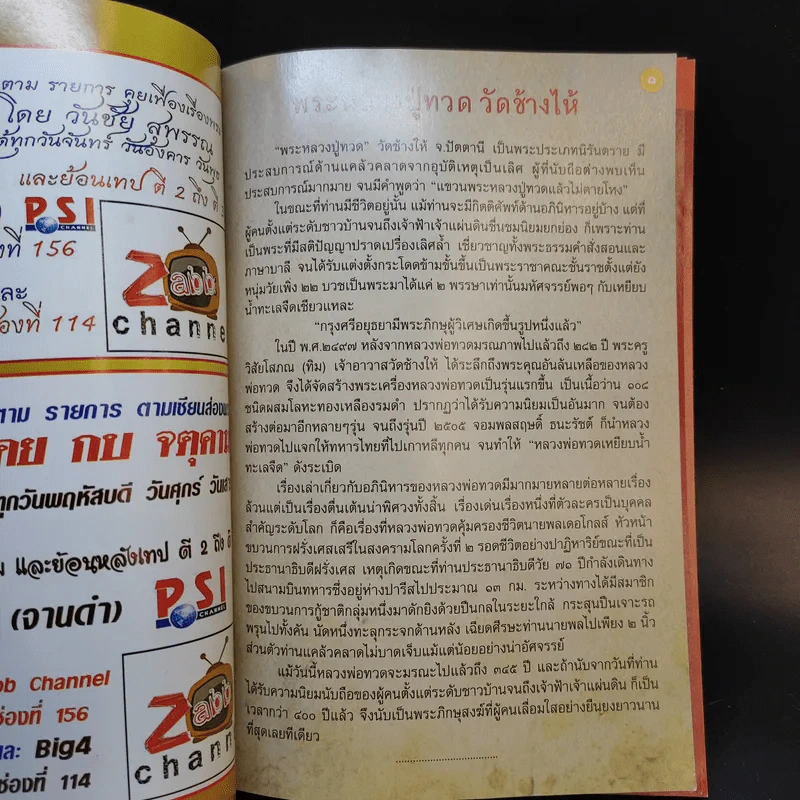 ตาม รายการ คุยเฟื่องเรื่องพระ
โดย วันชัย สุพรรณ
ได้ทุกวันจันทร์ วันอังคาร วันพุธ
และย้อนเทป ตี 2 ถึง ตี
PSI
CHANNEL
ที่ 156
และ
ช่องที่ 114
Zabb
channel
ตาม รายการ ตามเซียนส่องพระ
คุย กับ จตุคาม
ทุกวันพฤหัสบดี วันศุกร์ วันเสาร์
และย้อนหลังเทป ตี 2 ถึง ตี
(จานดำ) PSI
CHANNEL
Channel
ช่องที่ 156
และ Big4
ช่องที่ 114
Zabb
channel
๑
พระหลวงปู่ทวด วัดช้างไห้
"พระหลวงปู่ทวด" วัดช้างให้ จ.ปัตตานี เป็นพระประเภทนิรันตราย มี
ประสบการณ์ด้านแคล้วคลาดจากอุบัติเหตุเป็นเลิศ ผู้ที่นับถือต่างพบเห็น
ประสบการณ์มากมาย จนมีคำพูดว่า "แขวนพระหลวงปู่ทวดแล้วไม่ตายโหง"
ในขณะที่ท่านมีชีวิตอยู่นั้น แม้ว่าท่านจะมีกิตติศัพท์ด้านอภินิหารอยู่บ้าง แต่ที่
ผู้คนตั้งแต่ระดับชาวบ้านจนถึงเจ้าฟ้าเจ้าแผ่นดินชื่นชมนิยมยกย่อง ก็เพราะท่าน
เป็นพระที่มีสติปัญญาปราดเปรื่องเลิศล้ำ เชี่ยวชาญทั้งพระธรรมคำสั่งสอนและ
ภาษาบาลี จนได้รับแต่งตั้งกระโดดข้ามขั้นขึ้นเป็นพระราชาคณะชั้นราชตั้งแต่ยัง
หนุ่มวัยเพิ่ง ๒๒ บวชเป็นพระมาได้แค่ ๒ พรรษาเท่านั้นมหัศจรรย์พอๆ กับเหยียบ
น้ำทะเลจืดเชียวแหละ
"กรุงศรีอยุธยามีพระภิกษุผู้วิเศษเกิดขึ้นรูปหนึ่งแล้ว"
ในปี พ.ศ.๒๔๙๗ หลังจากหลวงพ่อทวดมรณภาพไปแล้วถึง ๒๘๒ ปี พระครู
วิสัยโสภณ (ทิม) เจ้าอาวาสวัดช้างให้ ได้ระลึกถึงพระคุณอันล้นเหลือของหลวง
พ่อทวด จึงได้จัดสร้างพระเครื่องหลวงพ่อทวดเป็นรุ่นแรกขึ้น เป็นเนื้อว่าน ๑๐๘
ชนิดผสมโลหะทองเหลืองรมดำ ปรากฏว่าได้รับความนิยมเป็นอันมาก จนต้อง
สร้างต่อมาอีกหลายๆรุ่น จนถึงรุ่นปี ๒๕๐๕ จอมพลสฤษดิ์ ธนะรัชต์ ก็นำหลวง
พ่อทวดไปแจกให้ทหารไทยที่ไปเกาหลีทุกคน จนทำให้ "หลวงพ่อทวดเหยียบน้ำ
ทะเลจืด" ดังระเบิด
เรื่องเล่าเกี่ยวกับอภินิหารของหลวงพ่อทวดมีมากมายหลายต่อหลายเรื่อง
ล้วนแต่เป็นเรื่องตื่นเต้นน่าพิศวงทั้งสิ้น เรื่องเด่นเรื่องหนึ่งที่ตัวละครเป็นบุคคล
สำคัญระดับโลก ก็คือเรื่องที่หลวงพ่อทวดคุ้มครองชีวิตนายพลเดอโกลส์ หัวหน้า
ขบวนการฝรั่งเศสเสรีในสงครามโลกครั้งที่ ๒ รอดชีวิตอย่างปาฏิหาริย์ขณะที่เป็น
ประธานาธิบดีฝรั่งเศส เหตุเกิดขณะที่ท่านประธานาธิบดีวัย ๗๑ ปีกำลังเดินทาง
ไปสนามบินทหารซึ่งอยู่ห่างปารีสไปประมาณ ๑๓ กม. ระหว่างทางได้มีสมาชิก
ของขบวนการกู้ชาติกลุ่มหนึ่งมาดักยิงด้วยปืนกลในระยะใกล้ กระสุนปืนเจาะรถ
พรุนไปทั้งคัน นัดหนึ่งทะลุกระจกด้านหลัง เฉียดศีรษะท่านนายพลไปเพียง ๒ นิ้ว
ส่วนตัวท่านแคล้วคลาดไม่บาดเจ็บแม้แต่น้อยอย่างน่าอัศจรรย์
แม้วันนี้หลวงพ่อทวดจะมรณะไปแล้วถึง ๓๔๕ ปี และถ้านับจากวันที่ท่าน
ได้รับความนิยมนับถือของผู้คนตั้งแต่ระดับชาวบ้านจนถึงเจ้าฟ้าเจ้าแผ่นดิน ก็เป็น
เวลากว่า ๔๐๐ ปีแล้ว จึงนับเป็นพระภิกษุสงฆ์ที่ผู้คนเลื่อมใสอย่างยืนยงยาวนาน
ที่สุดเลยทีเดียว